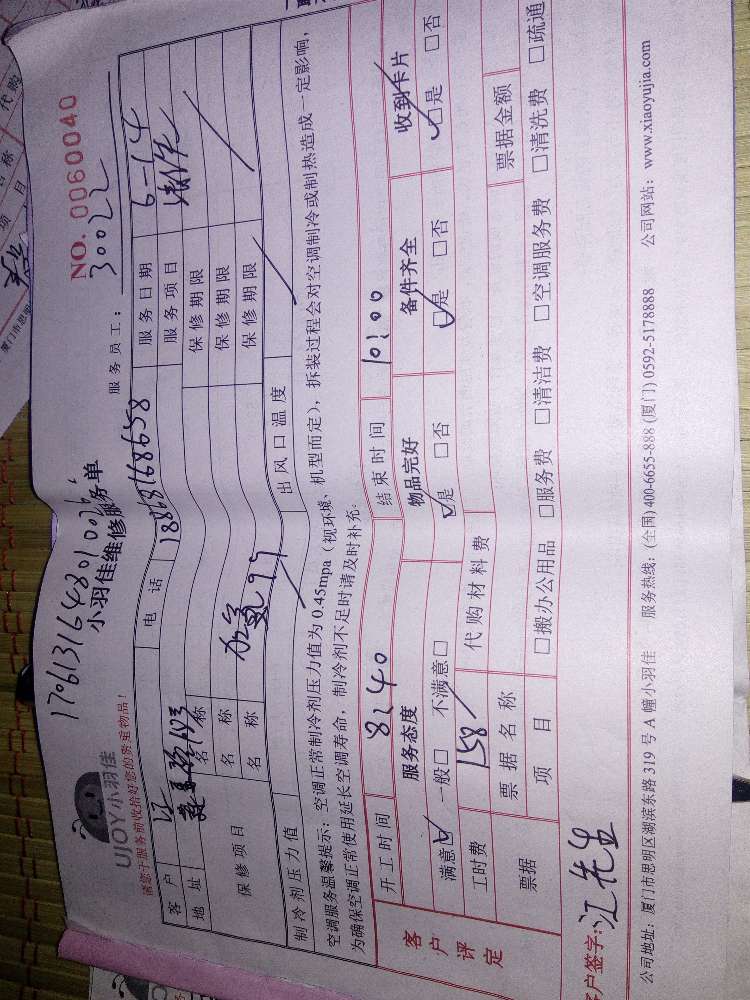 1706131648010026
UJOY小羽佳
小羽佳维修服务单
NO. 0060040
请您于服务前收拾好您的贵重物品!
服务员工: 30022
客户 江 电话 18868168658 服务日期 6-14
地址 服务项目
保修项目 名称 保修期限
名称 加氟 99 保修期限
名称 保修期限
制冷剂压力值 出风口温度
空调服务温馨提示:空调正常制冷剂压力值为0.45mpa(视环境、机型而定),拆装过程会对空调制冷或制热造成一定影响,
为确保空调正常使用延长空调寿命,制冷剂不足时请及时补充。
客户评定
开工时间 8:40 结束时间 10:00
服务态度 物品完好 备件齐全 收到卡片
满意☑ 一般□ 不满意□ ☑是 □否 ☑是 □否 ☑是 □否
工时费 158 代购材料费
票据 票据名称 票据金额
项目 □搬办公用品 □服务费 □清洁费 □空调服务费 □清洗费 □疏通
客户签字:江先生
公司地址:厦门市思明区湖滨东路319号A幢小羽佳 服务热线:(全国)400-6655-888 (厦门)0592-5178888 公司网站:www.xiaoyujia.com